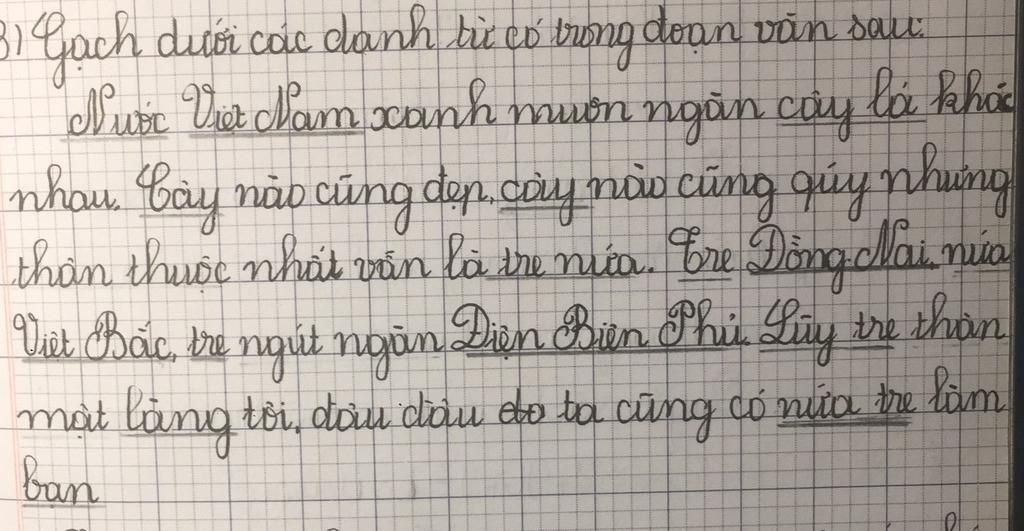 3) Gạch dưới các danh từ có trong đoạn văn sau:
Nước Việt Nam xanh muôn ngàn cây lá khác
nhau. Cây nào cũng đẹp, cây nào cũng qúy nhưng
thân thuộc nhất vẫn là tre nứa. Tre Đồng Nai, nứa
Việt Bắc, tre ngút ngàn Điện Biên Phủ. Lũy tre thân
mật làng tôi, đâu đâu ta cũng có nứa tre làm
bạn